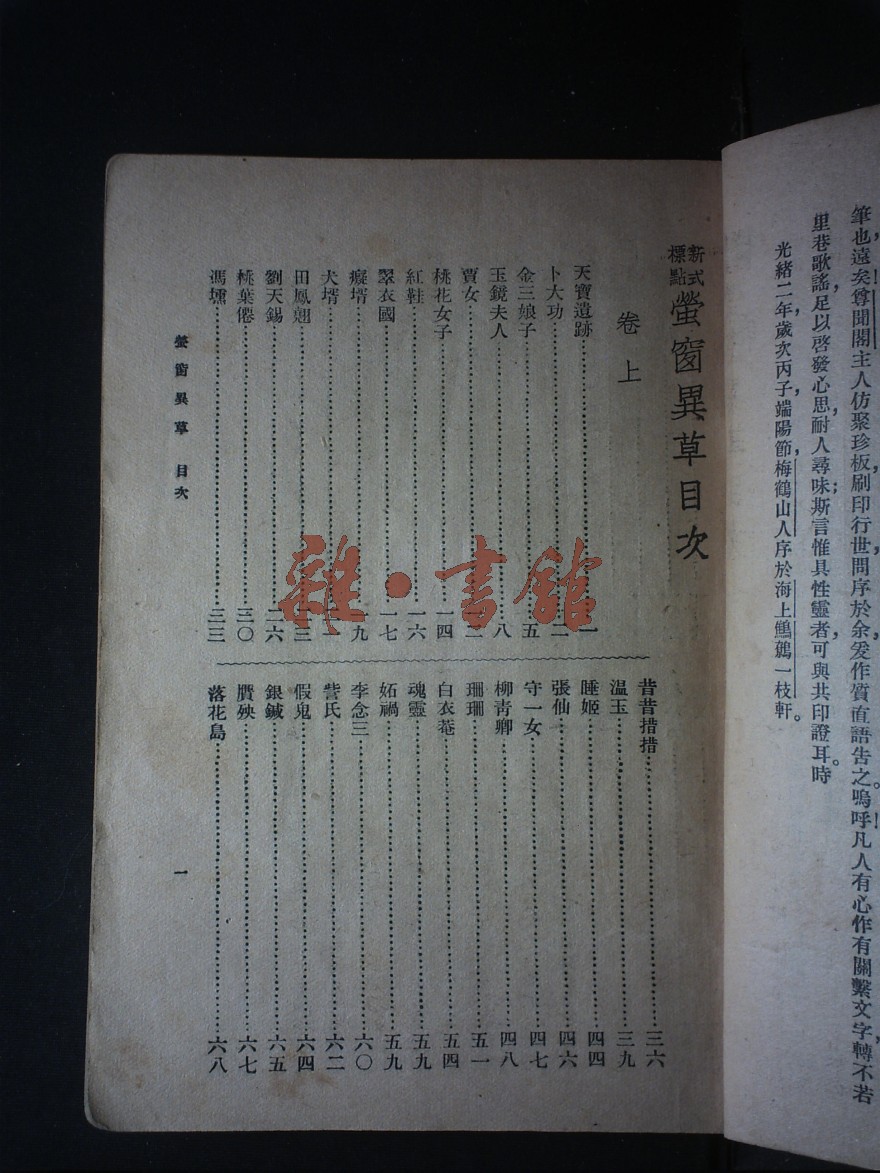 筆也,遠矣!尊聞閣主人仿聚珍板,刷印行世,問序於余,爰作質直語告之。嗚呼!凡人有心作有關繫文字,轉不若
里巷歌謠,足以啓發心思,耐人尋味;斯言惟具性靈者,可與共印證耳。時
光緒二年,歲次丙子,端陽節,梅鶴山人序於海上鷦鷯一枝軒。
新式標點螢窗異草目次
卷上
天寶遺跡……一
卜大功……二
金三娘子……五
玉鏡夫人……八
賈女……一二
桃花女子……一四
紅鞋……一六
翠衣國……一七
癡壻……一九
犬壻……
田鳳翹……二三
劉天錫……二六
桃葉僊……三〇
馮壎……三三
昔昔措措……三六
温玉……三九
睡姬……四四
張仙……四六
守一女……四七
柳青卿……四八
珊珊……五一
白衣菴……五四
魂靈……五九
妬禍……五九
李念三……六〇
訾氏……六二
假鬼……六四
銀鍼……六五
贋殃……六七
落花島……六八
螢窗異草 目次
一
雜·書館